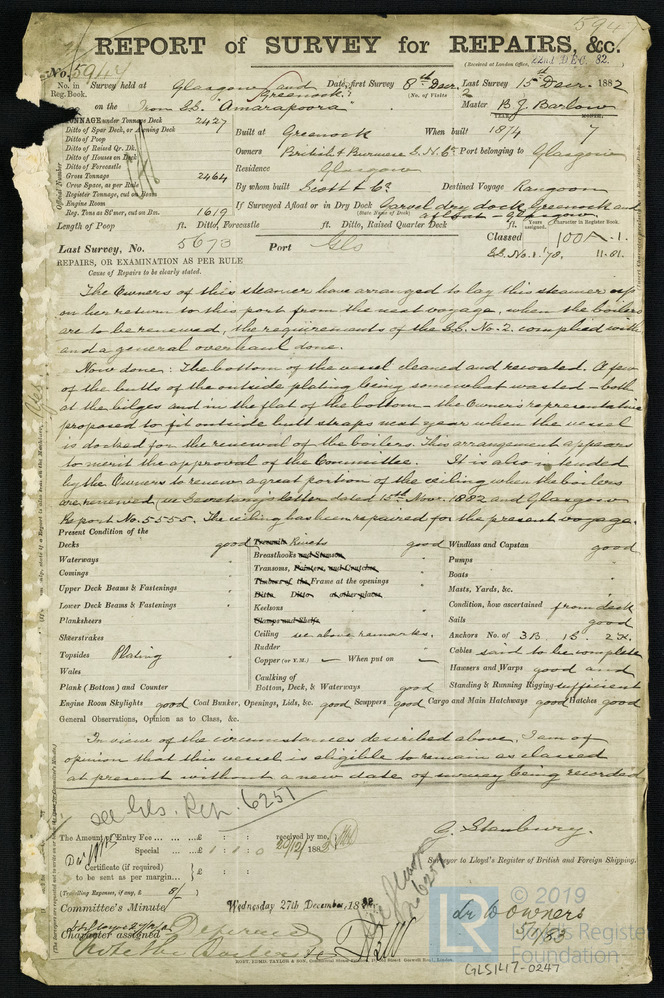 5947
REPORT of SURVEY for REPAIRS, &c.
(Received at London Office, 22nd DEC. 82.
No. 5947
No. in Survey held at Glasgow and Greenock Date, first Survey 8th Decr. Last Survey 15th Decr. 1882
Reg. Book. (No. of Visits 2
on the Iron S.S. "Amarapoora" Master B. J. Barlow
TONNAGE under Tonnage Deck 2427
Ditto of Spar Deck, or Awning Deck
Ditto of Poop
Ditto of Raised Qr. Dk.
Ditto of Houses on Deck
Ditto of Forecastle
Gross Tonnage 2464
Crew Space, as per Rule
Register Tonnage, cut on Beam
Engine Room
Reg. Tons as Stmer, cut on Bm. 1619
Official Number
YEAR. MONTH.
Built at Greenock When built 1874 7
Owners British & Burmese S. N. Co. Port belonging to Glasgow
Residence Glasgow
By whom built Scott & Co. Destined Voyage Rangoon
If Surveyed Afloat or in Dry Dock Garvel dry dock, Greenock and
(State Name of Dock) afloat - Glasgow
Length of Poop ft. Ditto, Forecastle ft. Ditto, Raised Quarter Deck ft.
Years assigned. Character in Register Book.
Last Survey, No. 5673 Port Gls Classed 100A.1.
S.S. No. 1. '78. 11.81.
REPAIRS, OR EXAMINATION AS PER RULE
Cause of Repairs to be clearly stated.
The Owners of this steamer have arranged to lay this steamer up
on her return to this port from the next voyage, when the boilers
are to be renewed, the requirements of the S.S. No. 2 complied with
and a general overhaul done.
Now done: The bottom of the vessel cleaned and recoated. A few
of the butts of the outside plating being somewhat wasted - both
at the bilges and in the flat of the bottom - the Owner's representative
proposed to fit outside butt straps next year when the vessel
is docked for the renewal of the boilers. This arrangement appears
to merit the approval of the Committee. It is also intended
by the Owners to renew a great portion of the ceiling when the boilers
are renewed, Secretary's letter dated 15th Nov. 1882 and Glasgow
Report No. 5555. The ceiling has been repaired for the present voyage.
Present Condition of the
Decks good
Waterways "
Comings "
Upper Deck Beams & Fastenings "
Lower Deck Beams & Fastenings "
Planksheers
Sheerstrakes "
Topsides Plating "
Wales
Plank (Bottom) and Counter
Treenails Rivets good
Breasthooks and Stemson "
Transoms, Pointers, and Crutches "
Timbers of the Frame at the openings "
Ditto Ditto at other places
Keelsons "
Clamps and Shelfs
Ceiling see above remarks.
Rudder "
Copper (or Y.M.) — When put on —
Caulking of
Bottom, Deck, & Waterways good
Windlass and Capstan good
Pumps "
Boats "
Masts, Yards, &c. "
Condition, how ascertained from deck
Sails good
Anchors No. of 3B. 1S. 2K.
Cables said to be complete
Hawsers and Warps good and
Standing & Running Rigging sufficient
Engine Room Skylights good Coal Bunker, Openings, Lids, &c. good Scuppers good Cargo and Main Hatchways good Hatches good
General Observations, Opinion as to Class, &c.
In view of the circumstances described above, I am of
opinion that this vessel is eligible to remain as classed
at present without a new date of survey being recorded
see Gls. Rep. 6251
The Amount of Entry Fee ... £ : : received by me,
Special ... £ 1 : 1 : 0 20/12/ 1882
Certificate (if required)
to be sent as per margin... £ : :
(Travelling Expenses, if any, £ 8/-
C. Stanbury.
Surveyor to Lloyd's Register of British and Foreign Shipping.
Committee's Minute Wednesday 27th December, 1882
Character assigned Deferred
6251
Owners
© 2019
LR
Lloyd's Register
Foundation
GLS147-0247